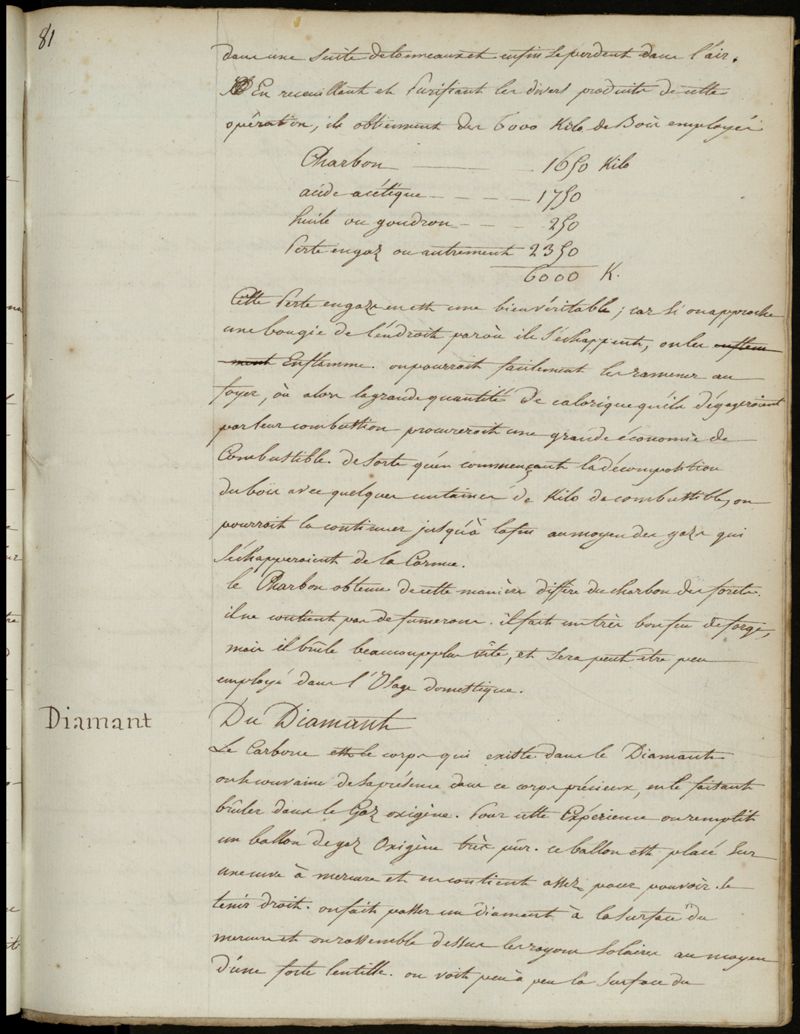 81
dans une suite de tonneaux et enfin se perdent dans l'air.
En recueillant et Purifiant les divers produits de cette
opération, ils obtiennent des 6000 Kilo de Bois employés
Charbon 1650 Kilo
acide acétique 1750
huile ou goudron 250
Perte en gaz ou autrement 2350
6000 K.
Cette Perte en gaz en est une bien véritable ; car si on approche
une bougie de l'endroit par où ils s'échappent, on les enflam
ment Enflamme. on pourroit facilement les ramener au
foyer, où alors la grande quantité de calorique qu'ils dégageroient
par leur combustion procureroit une grande économie de
Combustible. de sorte qu'en commençant la décomposition
du bois avec quelques centaines de Kilo de combustible, on
pourroit la continuer jusqu'à la fin au moyen des gazs qui
s'échapperoient de la Cornue.
le Charbon obtenu de cette manière diffère du charbon des forêts.
il ne contient pas de fumerons. il fait un très bon feu de forge,
mais il brûle beaucoup plus vîte, et sera peut être peu
employé dans l'Usage domestique.
Diamant
Du Diamant
Le Carbone est le corps qui existe dans le Diamant
on s'est convaincu de sa présence dans ce corps précieux, en le faisant
brûler dans le Gaz oxigène. Pour cette Expérience on remplit
un ballon de gaz Oxigène très pur. ce ballon est placé sur
une cuve à mercure et en contient assez pour pouvoir se
tenir droit. on fait passer un diamant à la surface du
mercure et on rassemble dessus les rayons solaires au moyen
d'une forte lentille. on voit peu à peu la surface du